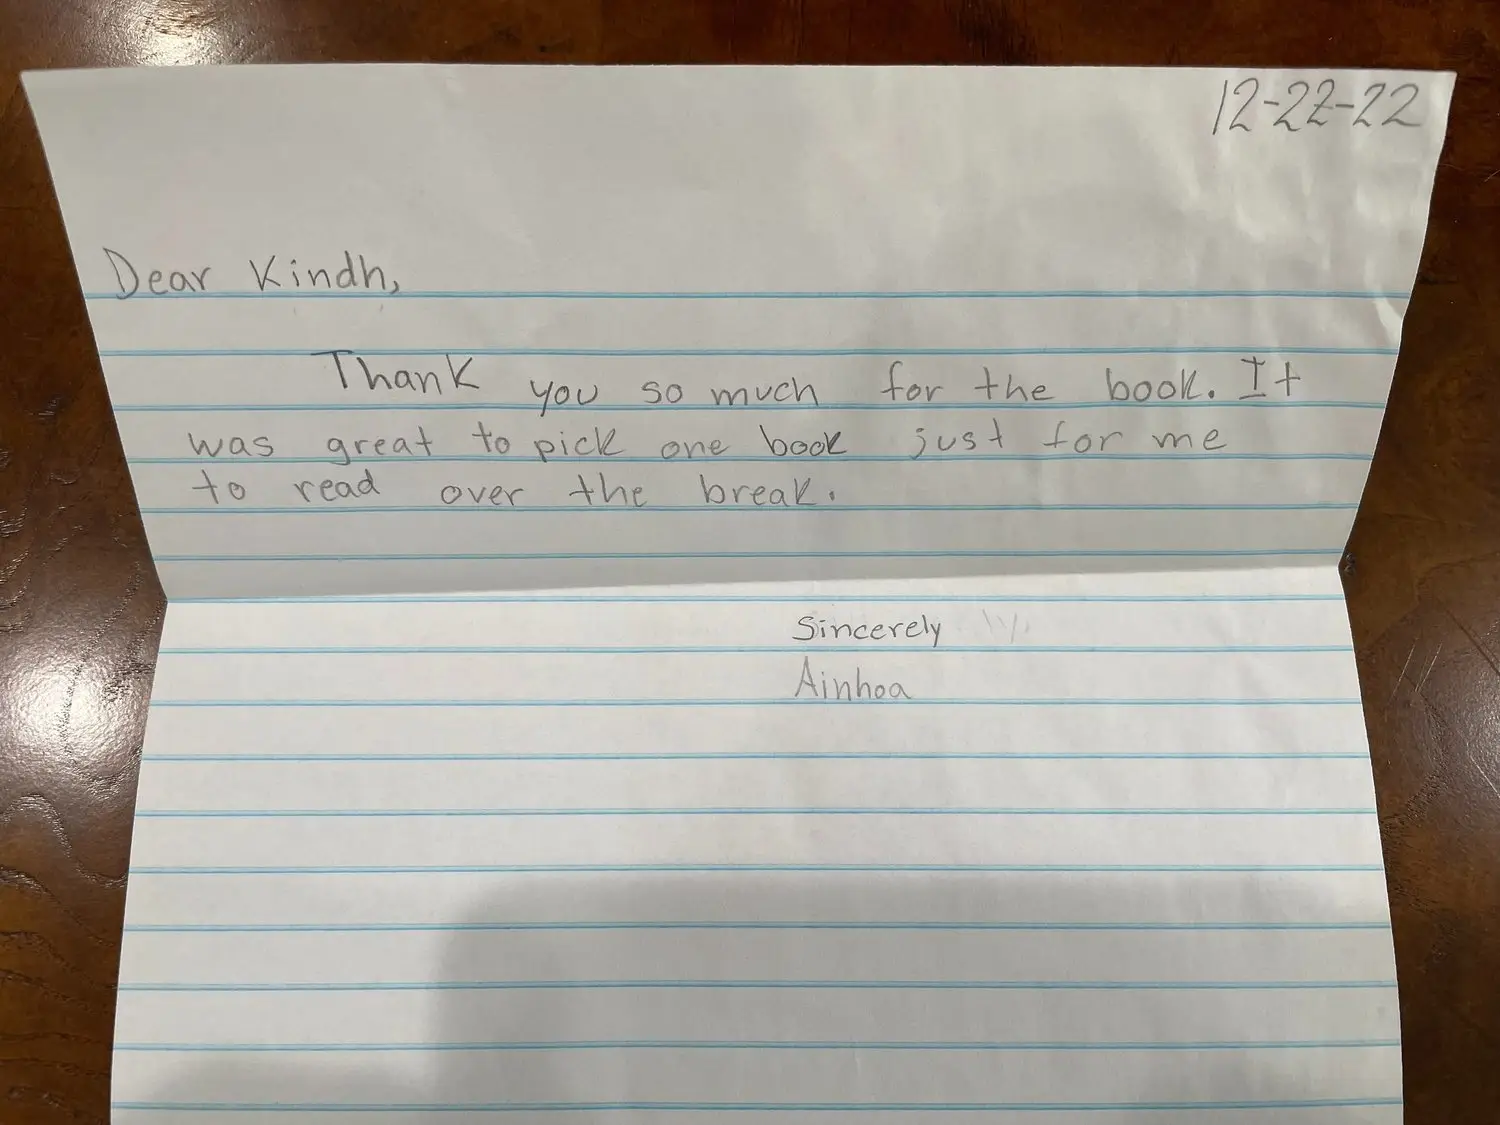 12-22-22
Dear Kindh,
Thank you so much for the book. It
was great to pick one book just for me
to read over the break.
Sincerely
Ainhoa